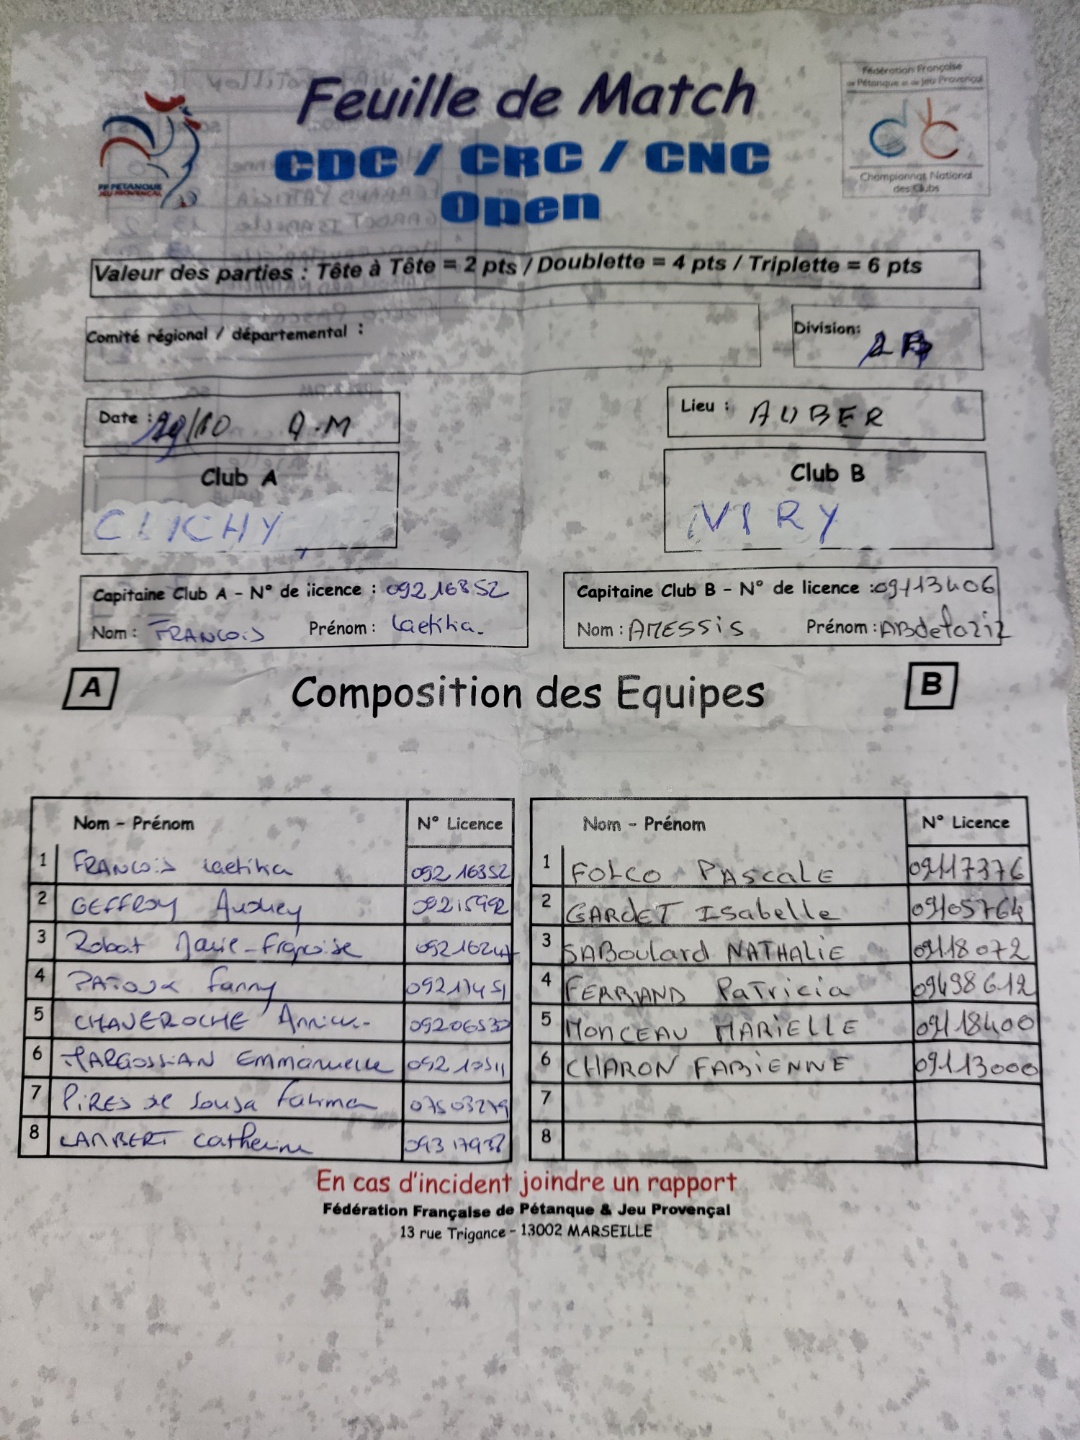 Feuille de Match
CDC / CRC / CNC
Open
FF PÉTANQUE
JEU PROVENÇAL
Fédération Française
de Pétanque et de Jeu Provençal
Championnat National
des Clubs
Valeur des parties : Tête à Tête = 2 pts / Doublette = 4 pts / Triplette = 6 pts
Comité régional / départemental :
Division:
Date : 29/10 A.M
Lieu : AUBER
Club A
CLICHY
Club B
VIRY
Capitaine Club A - N° de licence : 09216352
Nom : FRANCOIS Prénom : Laetitia
Capitaine Club B - N° de licence : 09113406
Nom : AMESSIS Prénom : ABdelaziz
A Composition des Equipes B
Nom - Prénom N° Licence
1 FRANCOIS Laetitia 09216352
2 GEFFROY Audrey 09215992
3 Robat Marie-Françoise
4 Fanny 09217451
5 CHAVEROCHE Annick 09206530
6 MARGOSSIAN Emmanuelle 09217511
7 PIRES de Sousa Fatima
8 LAMBERT Catherine 09317937
Nom - Prénom N° Licence
1 FOLCO PAscaLE 09117376
2 GARDET Isabelle 09105764
3 SABoulard NATHALIE 09118072
4 FERRAND PaTricia 09498612
5 MONCEAU MARIELLE 09118400
6 CHARON FABIENNE 09113000
7
8
En cas d'incident joindre un rapport
Fédération Française de Pétanque & Jeu Provençal
13 rue Trigance - 13002 MARSEILLE